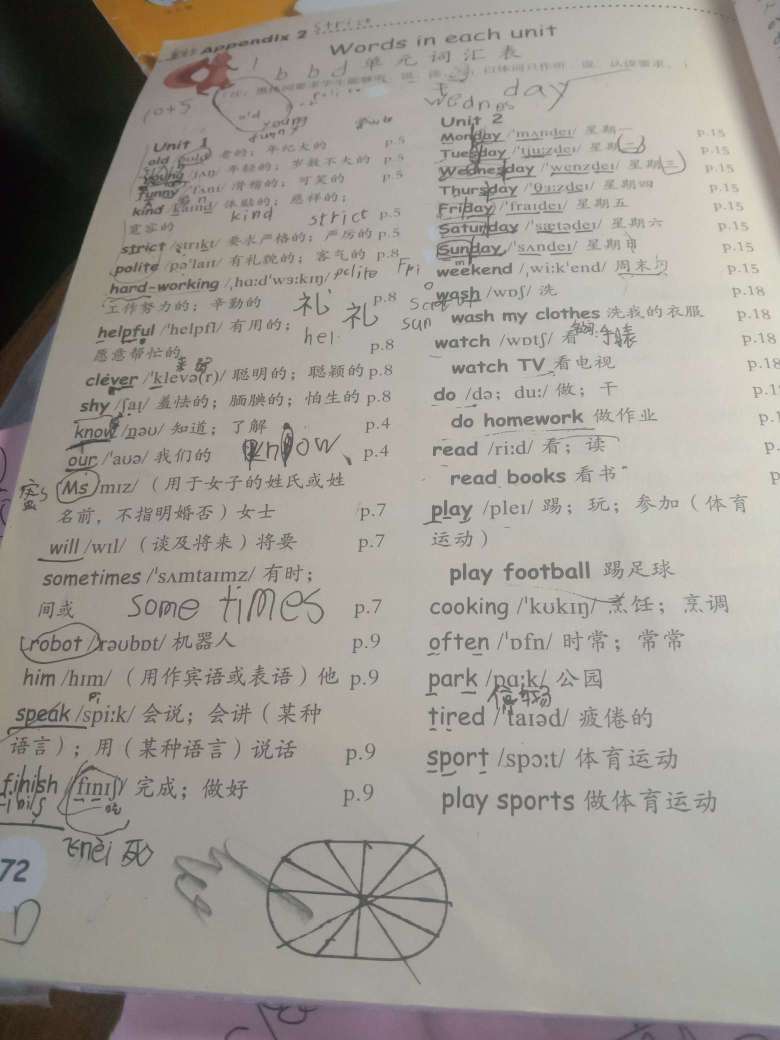 strict
Appendix 2
Words in each unit
单元词汇表
b b d
10+5
old
young
funny
wednes day
Unit 1
old /əʊld/ 老的；年纪大的 p.5
young /jʌŋ/ 年轻的；岁数不大的 p.5
funny /'fʌni/ 滑稽的；可笑的 p.5
kind /kaɪnd/ 体贴的；慈祥的；
宽容的 p.5
kind strict
strict /strɪkt/ 要求严格的；严厉的 p.5
polite /pə'laɪt/ 有礼貌的；客气的 p.8
hard-working /ˌhɑːd'wɜːkɪŋ/ polite
工作努力的；辛勤的 p.8
礼 礼
helpful /'helpfl/ 有用的；
hel
愿意帮忙的 p.8
clever /'klevə(r)/ 聪明的；聪颖的 p.8
shy /ʃaɪ/ 羞怯的；腼腆的；怕生的 p.8
know /nəʊ/ 知道；了解 p.4
our /'aʊə/ 我们的 know p.4
Ms /mɪz/ （用于女子的姓氏或姓
名前，不指明婚否）女士 p.7
will /wɪl/ （谈及将来）将要 p.7
sometimes /'sʌmtaɪmz/ 有时；
间或 some times p.7
robot /'rəʊbɒt/ 机器人 p.9
him /hɪm/ （用作宾语或表语）他 p.9
speak /spiːk/ 会说；会讲（某种
语言）；用（某种语言）说话 p.9
finish /'fɪnɪʃ/ 完成；做好 p.9
死
72
D
Unit 2
Monday /'mʌndeɪ/ 星期一 p.15
Tuesday /'tjuːzdeɪ/ 星期二 p.15
Wednesday /'wenzdeɪ/ 星期三 p.15
Thursday /'θɜːzdeɪ/ 星期四 p.15
Friday /'fraɪdeɪ/ 星期五 p.15
Saturday /'sætədeɪ/ 星期六 p.15
Sunday /'sʌndeɪ/ 星期日 p.15
Fri
weekend /ˌwiːk'end/ 周末 p.15
sun
wash /wɒʃ/ 洗 p.18
wash my clothes 洗我的衣服 p.18
watch /wɒtʃ/ 看 手表 p.18
watch TV 看电视 p.18
do /də; duː/ 做；干
do homework 做作业
read /riːd/ 看；读
read books 看书
play /pleɪ/ 踢；玩；参加（体育
运动）
play football 踢足球
cooking /'kʊkɪŋ/ 烹饪；烹调
often /'ɒfn/ 时常；常常
park /pɑːk/ 公园
tired /'taɪəd/ 疲倦的
sport /spɔːt/ 体育运动
play sports 做体育运动